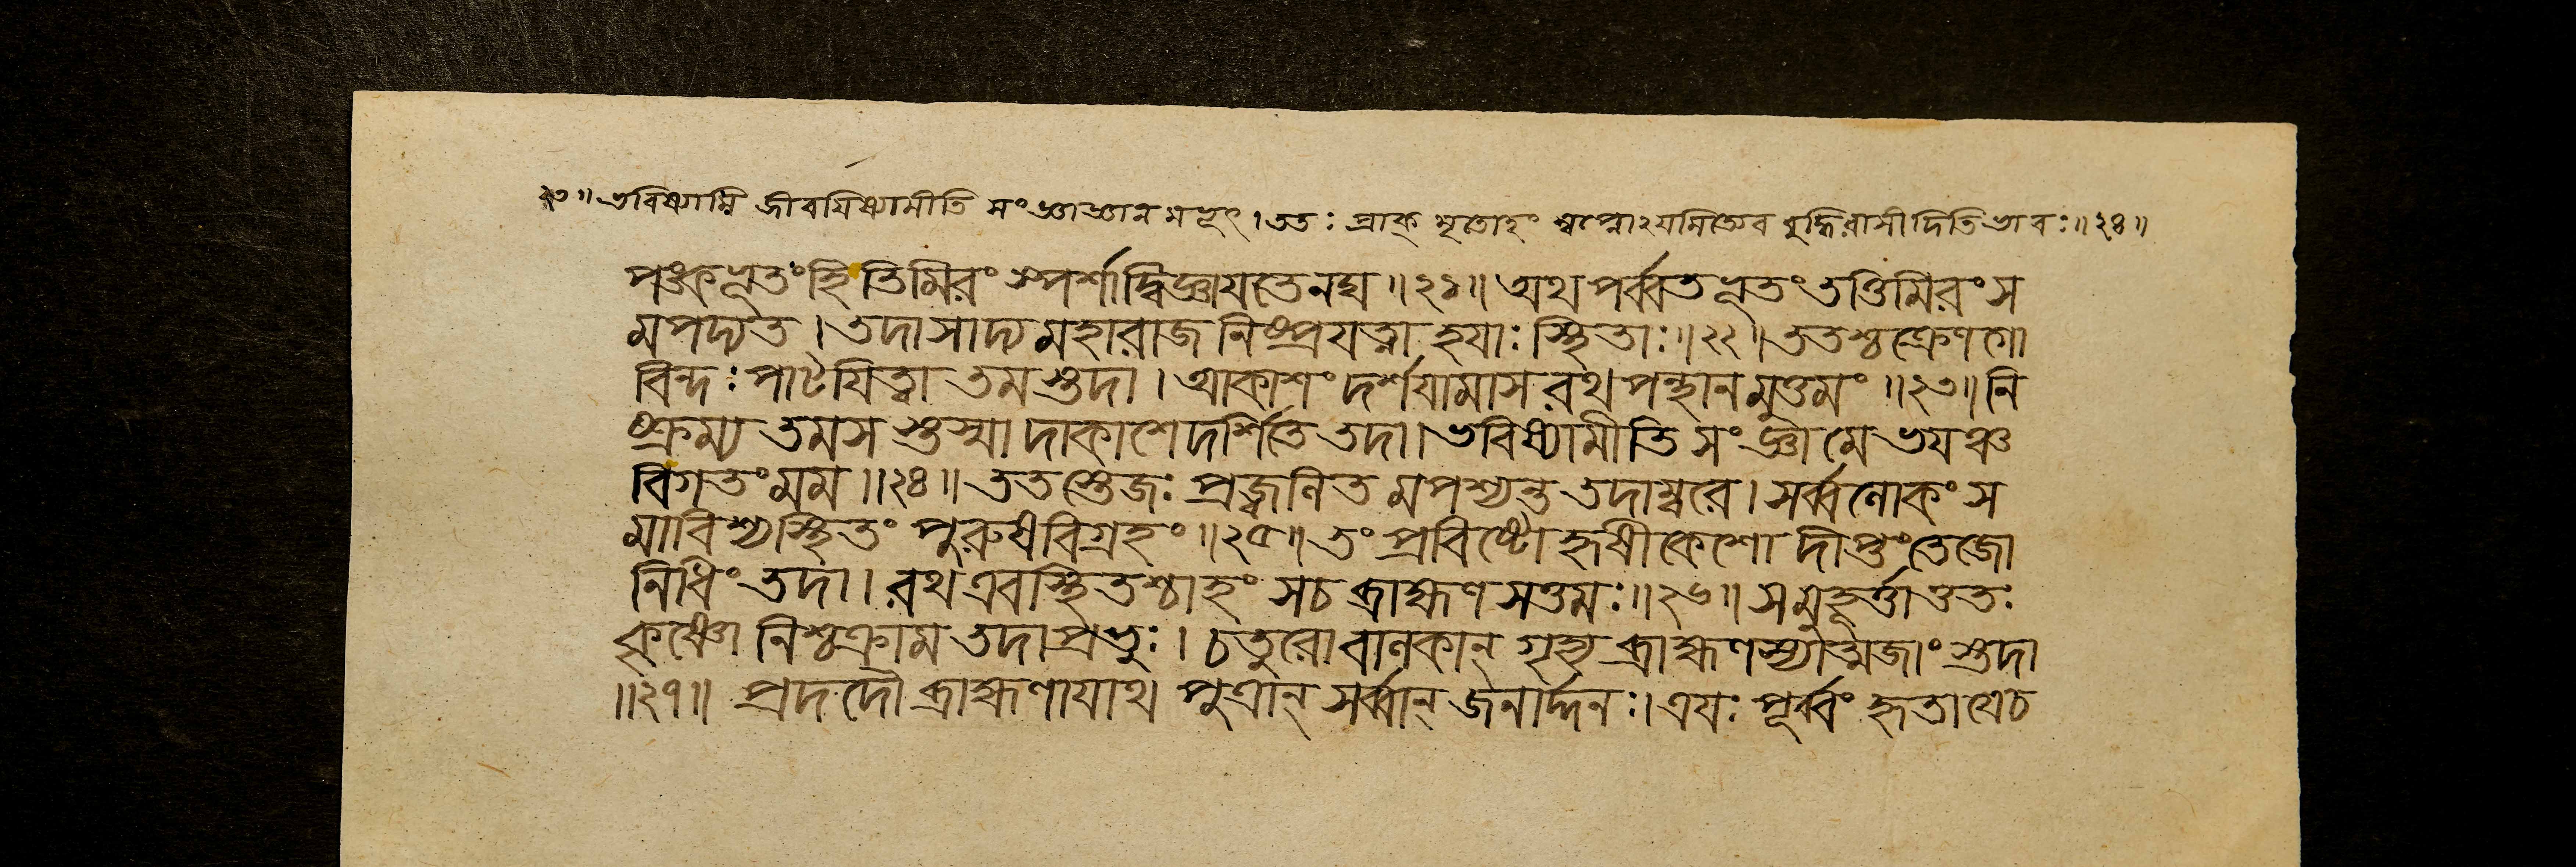 ২৩॥ ভবিষ্যামি জীবয়িষ্যামীতি সংজ্ঞাজ্ঞানমভূৎ। ততঃ প্রাক্ মৃতোহং স্বপ্নোঽয়মিত্যেব বুদ্ধিরাসীদিতিভাবঃ॥২৪॥
পঙ্কভূতংহি তিমিরং স্পর্শাদ্বিজ্ঞায়তেনঘ॥২১॥ অথ পর্ব্বতভূতং তত্তিমিরং স
মপদ্যত। তদাসাদ্য মহারাজ নিষ্প্রযত্না হয়াঃ স্থিতাঃ॥২২॥ ততশ্চক্রেণগো
বিন্দঃ পাটয়িত্বা তমস্তদা। আকাশং দর্শয়ামাস রথপন্থানমুত্তমং॥২৩॥ নি
ষ্ক্রম্য তমস স্তস্মাদাকাশেদর্শিতে তদা। ভবিষ্যামীতি সংজ্ঞামে ভয়ঞ্চ
বিগতংমম॥২৪॥ ততস্তেজঃ প্রজ্বলিত মপশ্যন্ত তদাম্বরে। সর্ব্বলোকং স
মাবিশ্যস্থিতং পুরুষবিগ্রহং॥২৫॥ তং প্রবিষ্টো হৃষীকেশো দীপ্তংতেজো
নিধিং তদা। রথএবস্থিতশ্চাহং সচ ব্রাহ্মণসত্তমঃ॥২৬॥ সমুহূর্ত্তাত্ততঃ
কৃষ্ণো নিশ্চক্রাম তদাপ্রভুঃ। চতুরো বালকান্ গৃহ্য ব্রাহ্মণস্যাত্মজাংস্তদা
॥২৭॥ প্রদদৌ ব্রাহ্মণায়াথ পুত্রান্ সর্ব্বান্ জনার্দ্দনঃ। ত্রয়ঃ পূর্ব্বং হৃতাযেচ